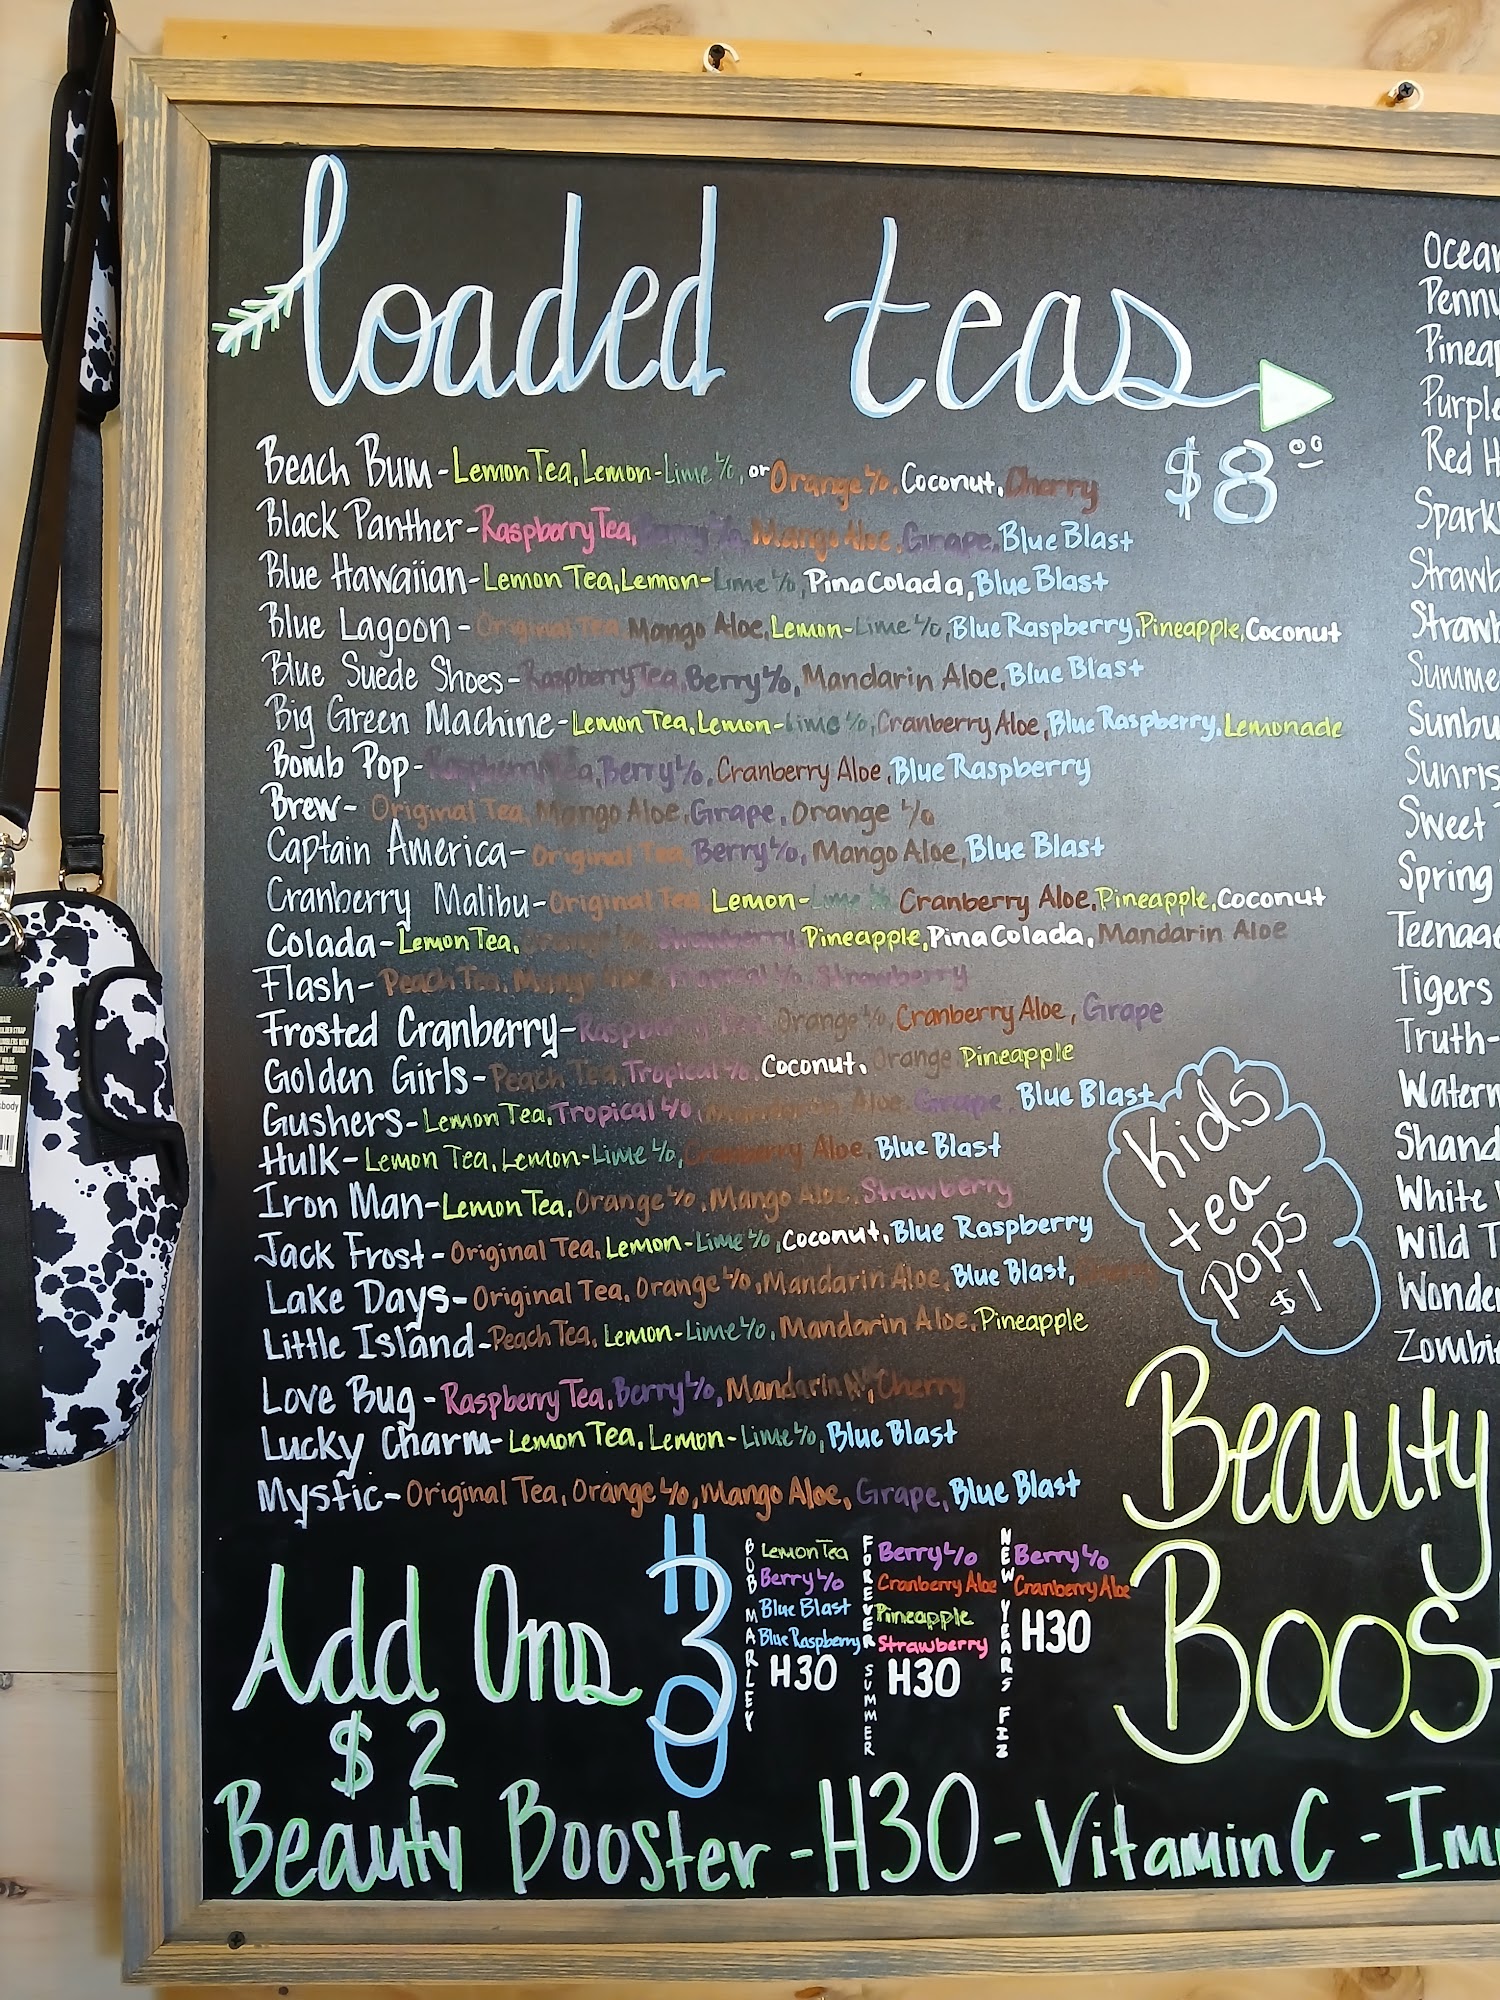 loaded teas
$8.00
Beach Bum - Lemon Tea, Lemon-Lime L/o, or Orange L/o, Coconut, Cherry
Black Panther - Raspberry Tea, Berry L/o, Mango Aloe, Grape, Blue Blast
Blue Hawaiian - Lemon Tea, Lemon-Lime L/o, Pina Colada, Blue Blast
Blue Lagoon - Original Tea, Mango Aloe, Lemon-Lime L/o, Blue Raspberry, Pineapple, Coconut
Blue Suede Shoes - Raspberry Tea, Berry L/o, Mandarin Aloe, Blue Blast
Big Green Machine - Lemon Tea, Lemon-Lime L/o, Cranberry Aloe, Blue Raspberry, Lemonade
Bomb Pop - Raspberry Tea, Berry L/o, Cranberry Aloe, Blue Raspberry
Brew - Original Tea, Mango Aloe, Grape, Orange L/o
Captain America - Original Tea, Berry L/o, Mango Aloe, Blue Blast
Cranberry Malibu - Original Tea, Lemon-Lime L/o, Cranberry Aloe, Pineapple, Coconut
Colada - Lemon Tea, Orange L/o, Strawberry, Pineapple, Pina Colada, Mandarin Aloe
Flash - Peach Tea, Mango Aloe, Tropical L/o, Strawberry
Frosted Cranberry - Raspberry Tea, Orange L/o, Cranberry Aloe, Grape
Golden Girls - Peach Tea, Tropical L/o, Coconut, Orange Pineapple
Gushers - Lemon Tea, Tropical L/o, Mandarin Aloe, Grape, Blue Blast
Hulk - Lemon Tea, Lemon-Lime L/o, Cranberry Aloe, Blue Blast
Iron Man - Lemon Tea, Orange L/o, Mango Aloe, Strawberry
Jack Frost - Original Tea, Lemon-Lime L/o, Coconut, Blue Raspberry
Lake Days - Original Tea, Orange L/o, Mandarin Aloe, Blue Blast,
Little Island - Peach Tea, Lemon-Lime L/o, Mandarin Aloe, Pineapple
Love Bug - Raspberry Tea, Berry L/o, Mandarin Al, Cherry
Lucky Charm - Lemon Tea, Lemon-Lime L/o, Blue Blast
Mystic - Original Tea, Orange L/o, Mango Aloe, Grape, Blue Blast
Kids
tea
pops
$1
Ocean
Penny
Pineap
Purple
Red H
Spark
Strawb
Straw
Summe
Sunbu
Sunris
Sweet
Spring
Teenage
Tigers
Truth-
Water
Shand
White
Wild T
Wonde
Zombi
Beauty
Boos
Add Ons
$2
H3O
BOB MARLEY
Lemon Tea
Berry L/o
Blue Blast
Blue Raspberry
H30
FOREVER SUMMER
Berry L/o
Cranberry Aloe
Pineapple
Strawberry
H30
NEW YEARS FIZ
Berry L/o
Cranberry Aloe
H30
Beauty Booster - H30 - Vitamin C - Im